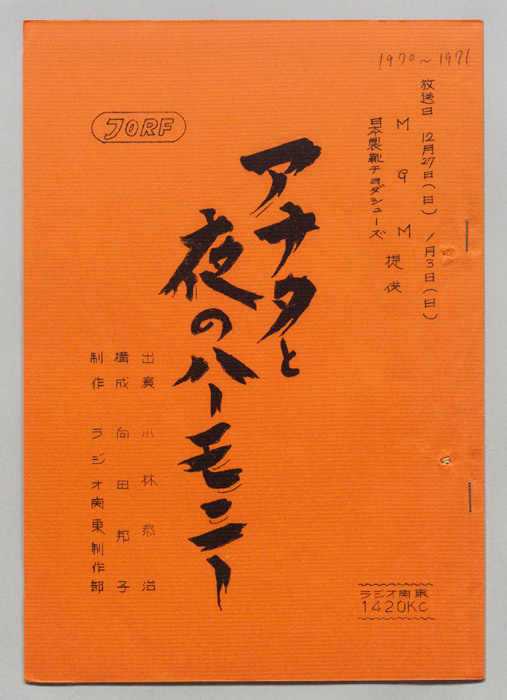 1970～1971
放送日 12月27日(日) 1月3日(日)
MGM 提供
日本製靴チヨダシューズ
JORF
アナタと
夜のハーモニー
出演 小林泰治
構成 向田邦子
制作 ラジオ関東制作部
ラジオ関東
1420KC